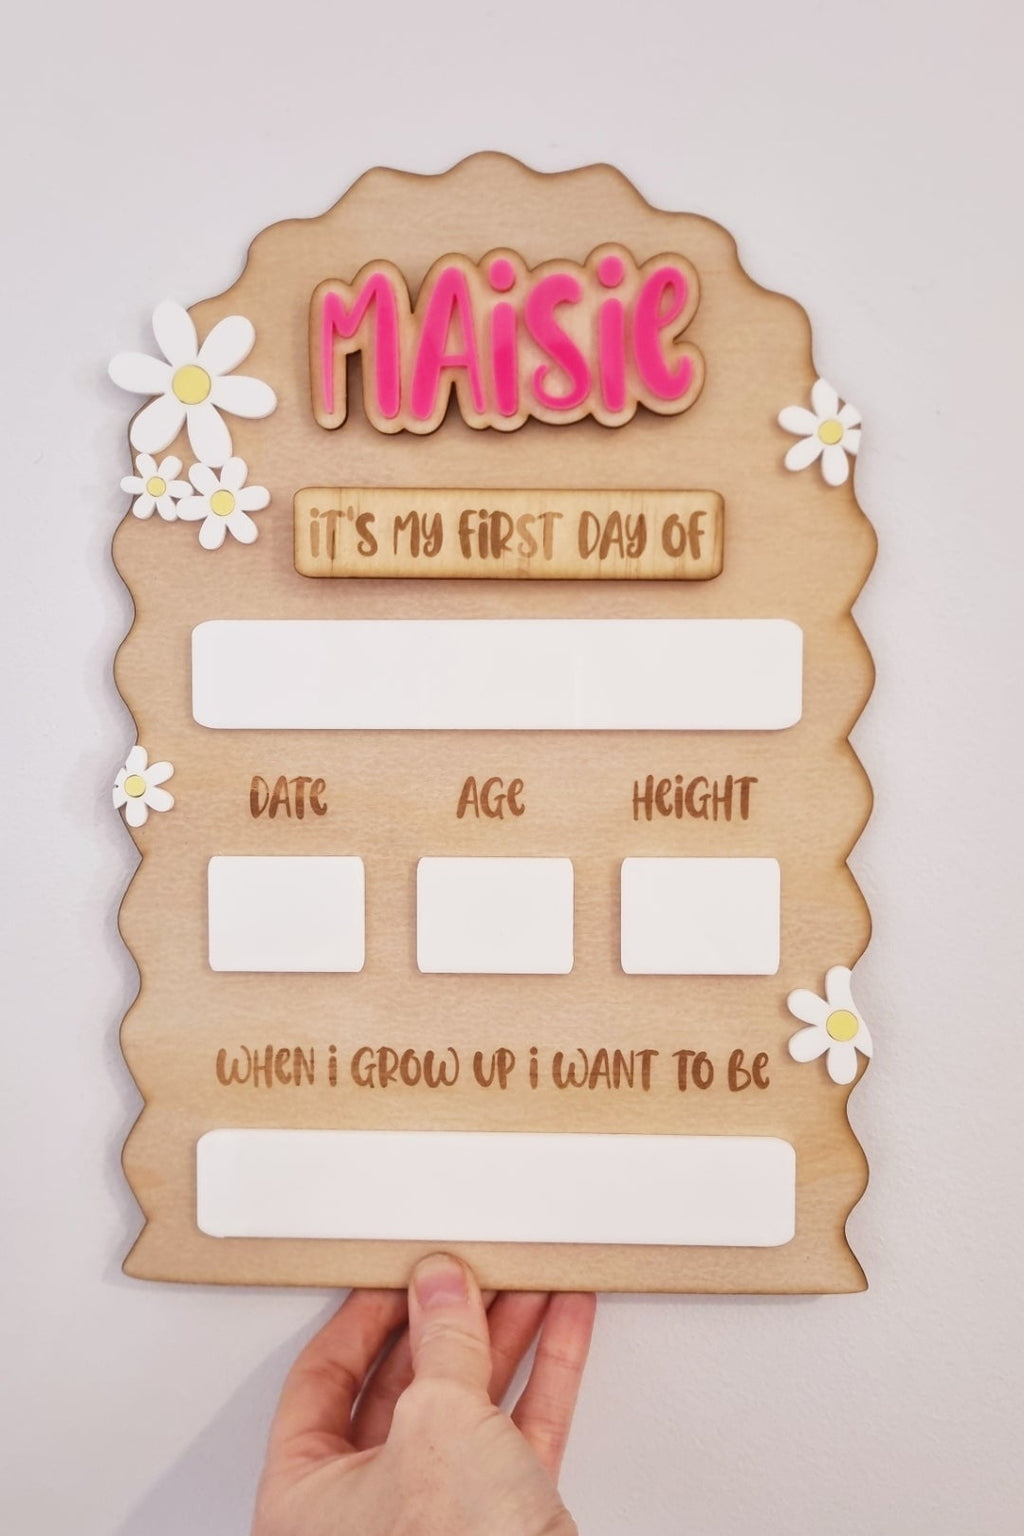 MAiSie
iT'S MY FiRST DAY OF
DATe AGe HeiGHT
WHeN i GROW UP i WANT TO Be